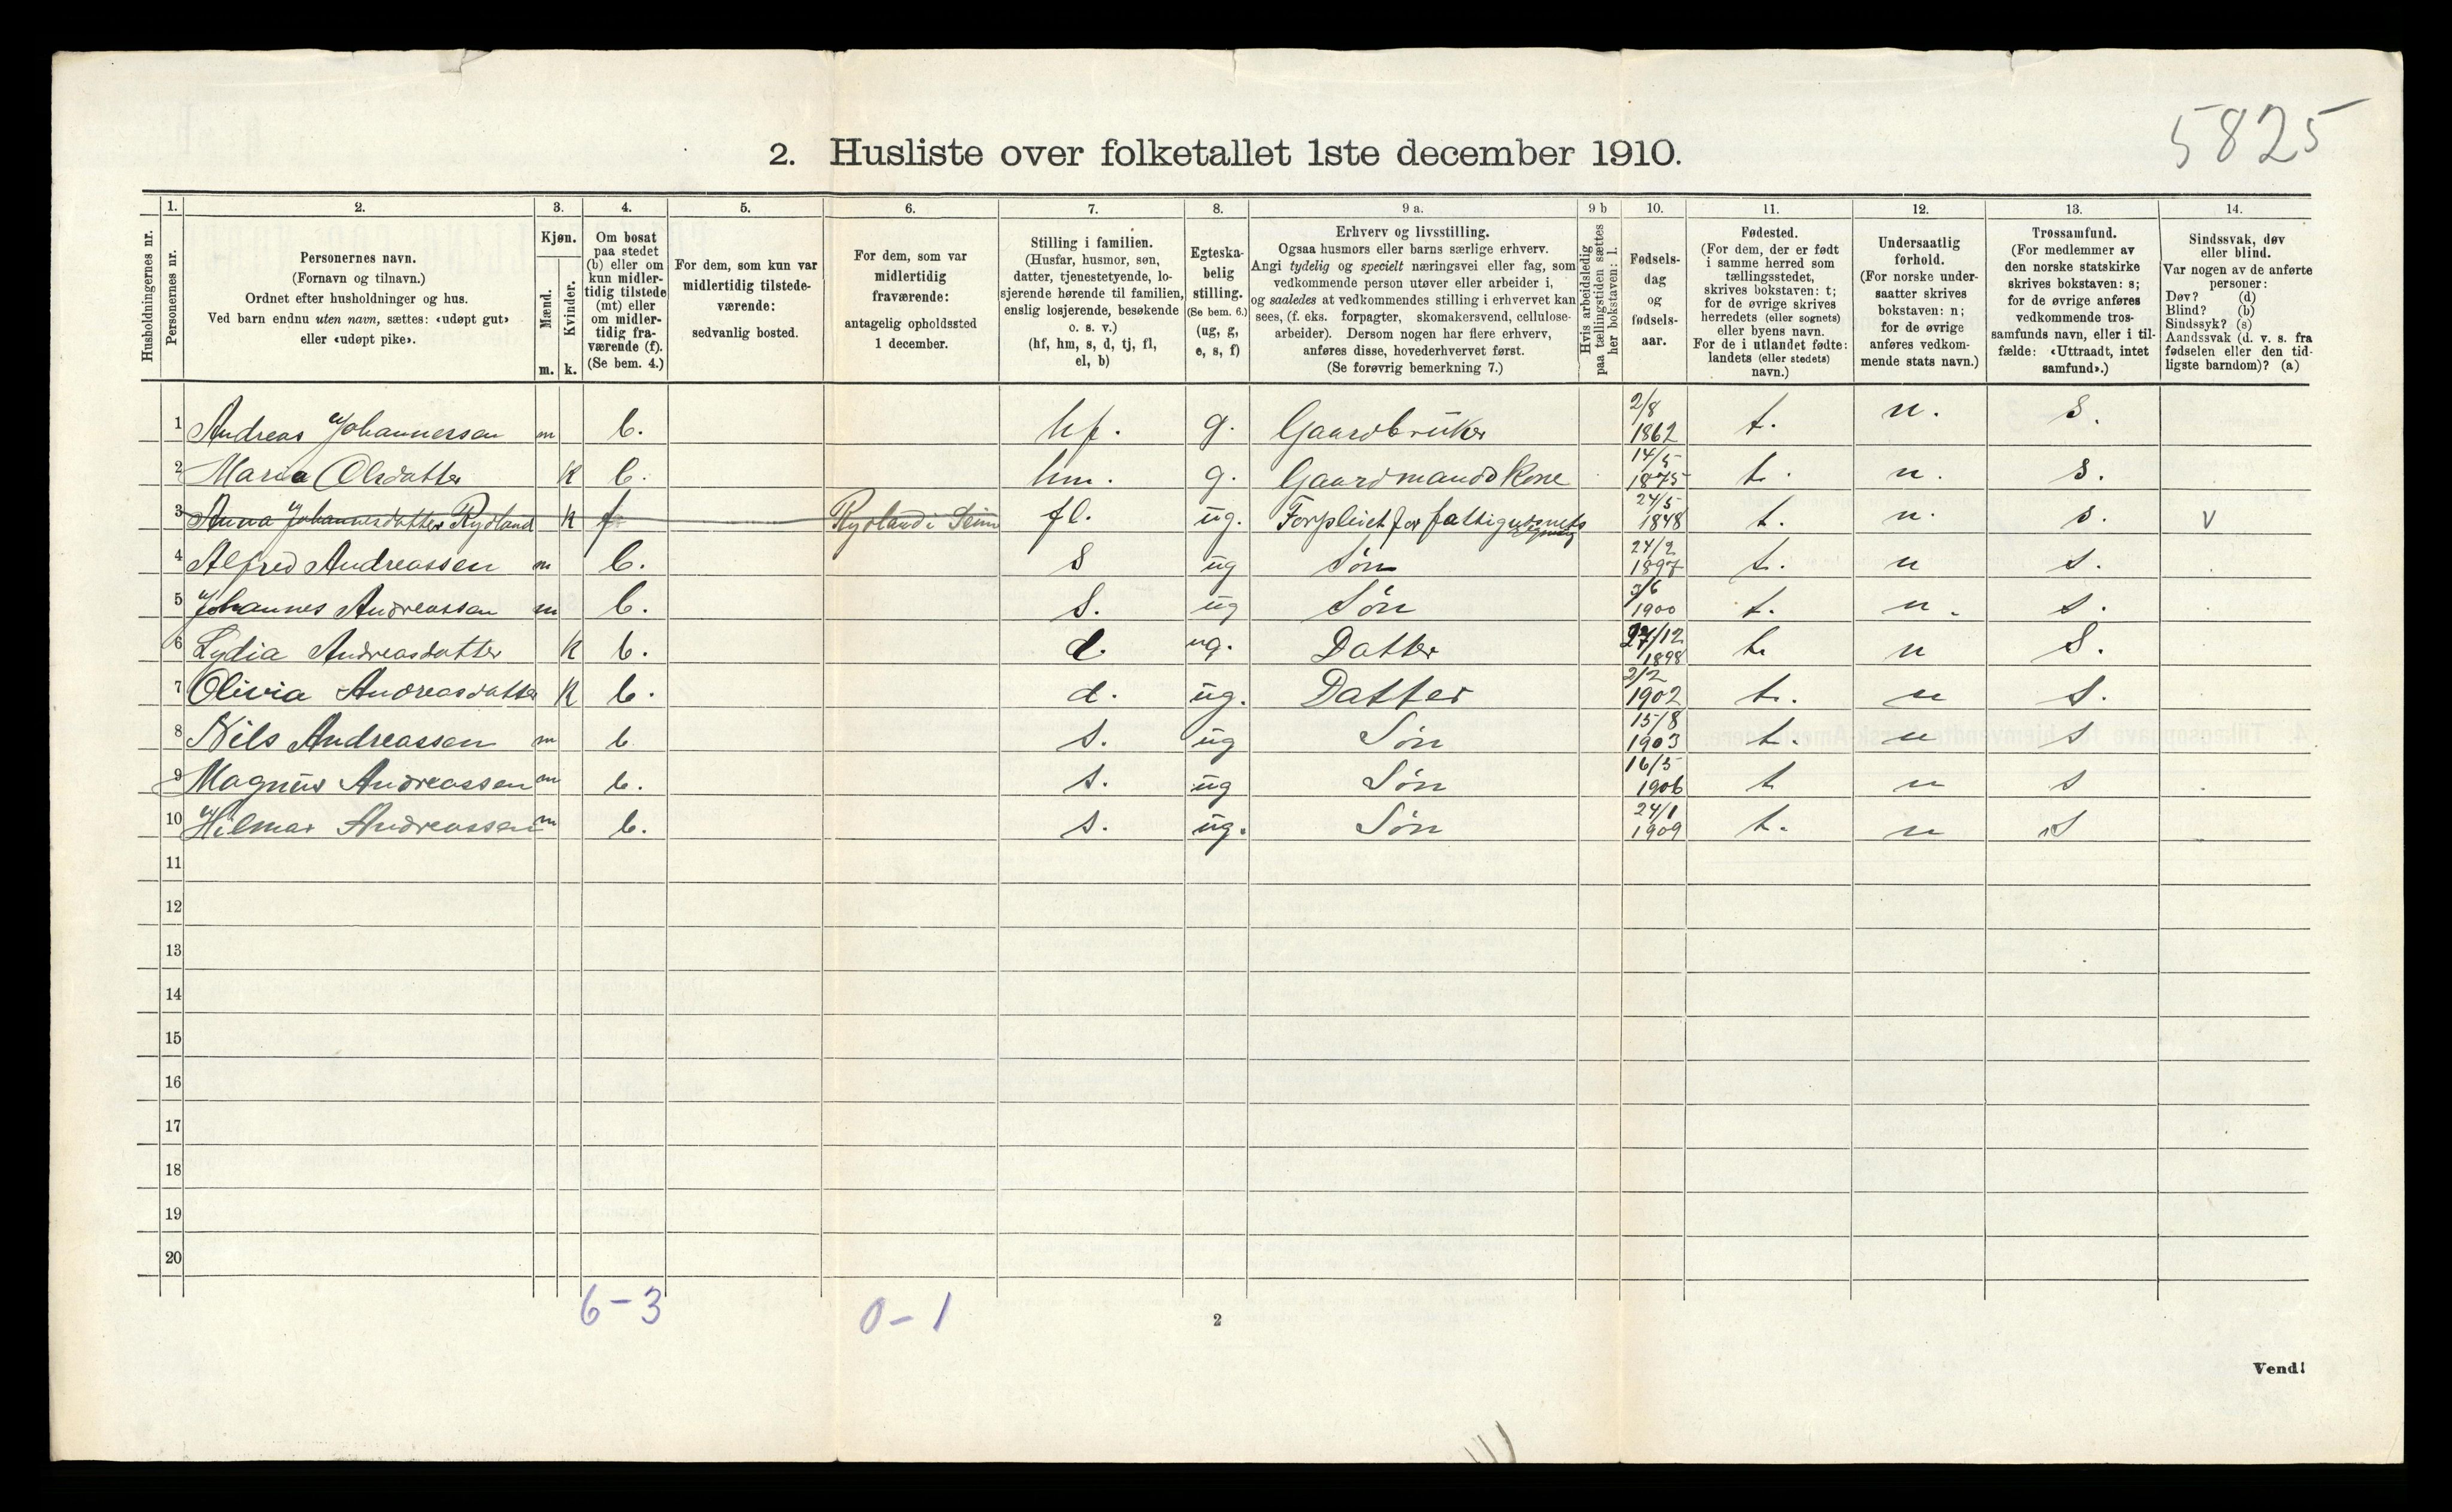 5825
2. Husliste over folketallet 1ste december 1910.
Husholdningernes nr.
1.
Personernes nr.
2.
Personernes navn.
(Fornavn og tilnavn.)
Ordnet efter husholdninger og hus.
Ved barn endnu uten navn, sættes: «udøpt gut»
eller «udøpt pike».
3.
Kjøn.
Mænd.
Kvinder.
m. k.
4.
Om bosat
paa stedet
(b) eller om
kun midler-
tidig tilstede
(mt) eller
om midler-
tidig fra-
værende (f).
(Se bem. 4.)
5.
For dem, som kun var
midlertidig tilstede-
værende:
sedvanlig bosted.
6.
For dem, som var
midlertidig
fraværende:
antagelig opholdssted
1 december.
7.
Stilling i familien.
(Husfar, husmor, søn,
datter, tjenestetyende, lo-
sjerende hørende til familien,
enslig losjerende, besøkende
o. s. v.)
(hf, hm, s, d, tj, fl,
el, b)
8.
Egteska-
belig
stilling.
(Se bem. 6.)
(ug, g,
e, s, f)
9 a.
Erhverv og livsstilling.
Ogsaa husmors eller barns særlige erhverv.
Angi tydelig og specielt næringsvei eller fag, som
vedkommende person utøver eller arbeider i,
og saaledes at vedkommendes stilling i erhvervet kan
sees, (f. eks. forpagter, skomakersvend, cellulose-
arbeider). Dersom nogen har flere erhverv,
anføres disse, hovederhvervet først.
(Se forøvrig bemerkning 7.)
9 b
Hvis arbeidsledig
paa tællingstiden sættes
her bokstaven: l.
10.
Fødsels-
dag
og
fødsels-
aar.
11.
Fødested.
(For dem, der er født
i samme herred som
tællingsstedet,
skrives bokstaven: t;
for de øvrige skrives
herredets (eller sognets)
eller byens navn.
For de i utlandet fødte:
landets (eller stedets)
navn.)
12.
Undersaatlig
forhold.
(For norske under-
saatter skrives
bokstaven: n;
for de øvrige
anføres vedkom-
mende stats navn.)
13.
Trossamfund.
(For medlemmer av
den norske statskirke
skrives bokstaven: s;
for de øvrige anføres
vedkommende tros-
samfunds navn, eller i til-
fælde: «Uttraadt, intet
samfund».)
14.
Sindssvak, døv
eller blind.
Var nogen av de anførte
personer:
Døv? (d)
Blind? (b)
Sindssyk? (s)
Aandssvak (d. v. s. fra
fødselen eller den tid-
ligste barndom)? (a)
1 Andreas Johannessen m b. hf. g. Gaardbruker 2/8 1862 t. n. s.
2 Maria Olsdatter k b. hm. g. Gaardmands Kone 14/5 1875 t. n. s.
3 Anna Johannesdatter Rydland k f Rydland i Seim fl. ug. Forpleiet for fattig 24/5 1848 t. n. s. v
4 Alfred Andreassen m b. s ug Søn 24/2 1897 t. n s.
5 Johannes Andreassen m b. s. ug Søn 3/6 1900 t. n. s.
6 Lydia Andreasdatter k b. d. ug. Datter 27/12 1898 t. n s.
7 Olivia Andreasdatter k b. d. ug. Datter 2/2 1902 t. n s.
8 Nils Andreassen m b s. ug Søn 15/8 1903 t. n s
9 Magnus Andreassen m b. s. ug Søn 16/5 1906 t n s
10 Hilmar Andreassen m b. s. ug. Søn 24/1 1909 t. n s
11
12
13
14
15
16
17
18
19
20
6-3 0-1
2
Vend!